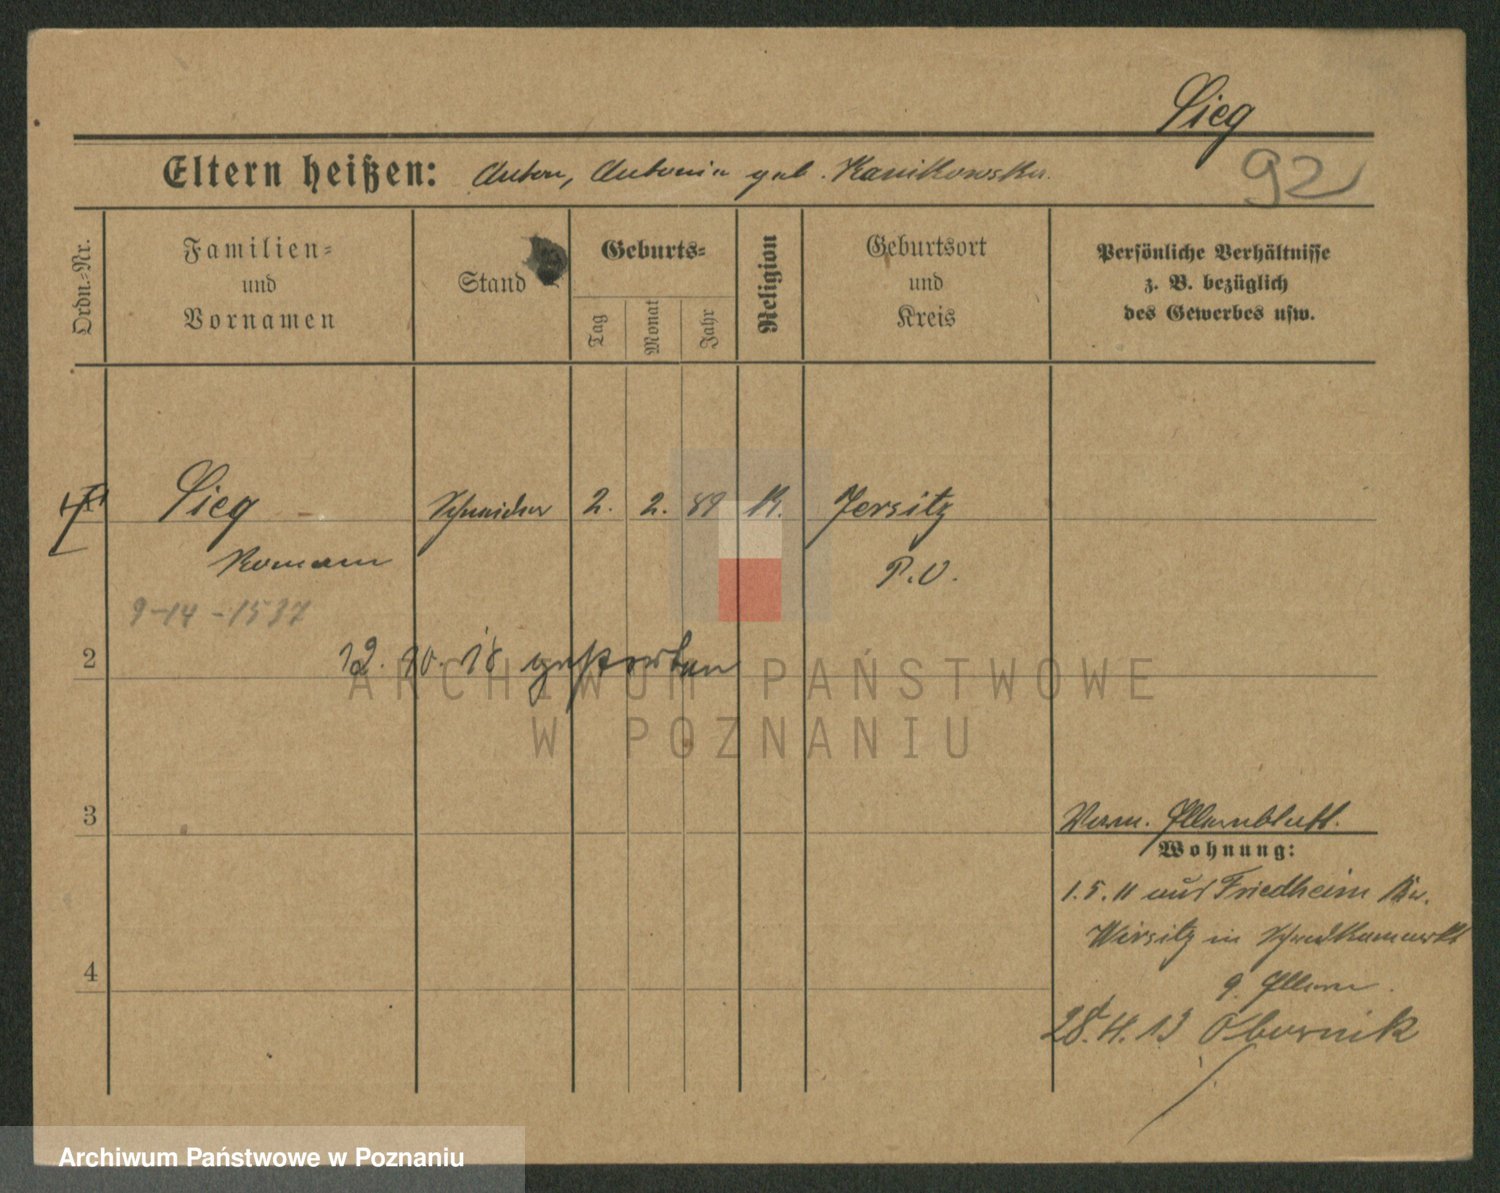 Sieg
Eltern heißen: Anton, Antonia geb. Kanikowska.
92
Ordn.-Nr.
Familien-
und
Vornamen
Stand
Geburts-
Tag
Monat
Jahr
Religion
Geburtsort
und
Kreis
Persönliche Verhältnisse
z. B. bezüglich
des Gewerbes usw.
1 Sieg Schneider 2. 2. 89 K. Jersitz
Romam P.O.
9-14-1537
2 12. 10. 18 gestorben
ARCHIWUM PAŃSTWOWE
W POZNANIU
3
Verm. Elternblatt.
Wohnung:
1.5.11 aus Friedheim Kr.
Wirsitz in
4
28. 4. 13 Obornik
Archiwum Państwowe w Poznaniu